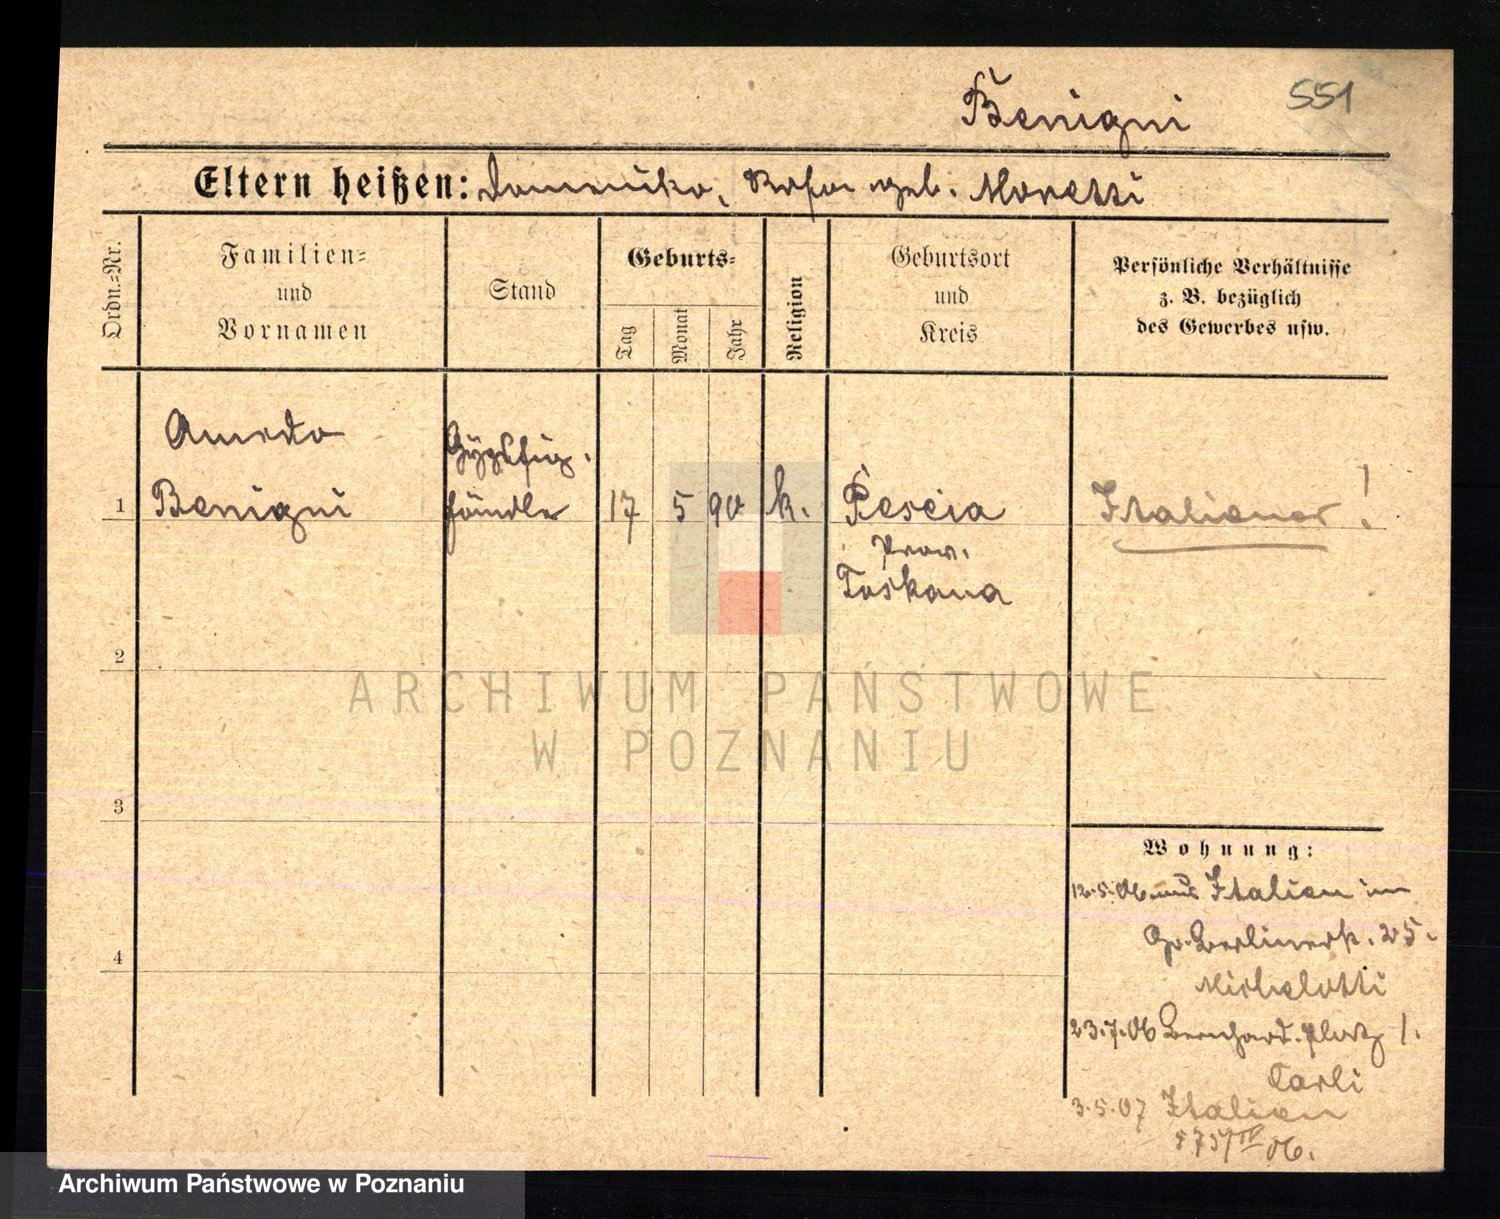 Benigni
551
Eltern heißen: Domeniko, Rosa geb. Moretti
Ordn.-Nr.
Familien-
und
Vornamen
Stand
Geburts-
Tag
Monat
Jahr
Religion
Geburtsort
und
Kreis
Persönliche Verhältnisse
z. B. bezüglich
des Gewerbes usw.
Amedo
Gypsfig.
1 Benigni händler 17 5 90 k. Pescia Italiener!
Prov.
Toskana
2
3
4
ARCHIWUM PAŃSTWOWE
W POZNANIU
Wohnung:
12.5.06 aus Italien im
Gr. Berlinerstr. 25.
Michelotti
23.7.06 Bernhard. platz 1.
Carli
3.5.07 Italien
IV 06.
Archiwum Państwowe w Poznaniu